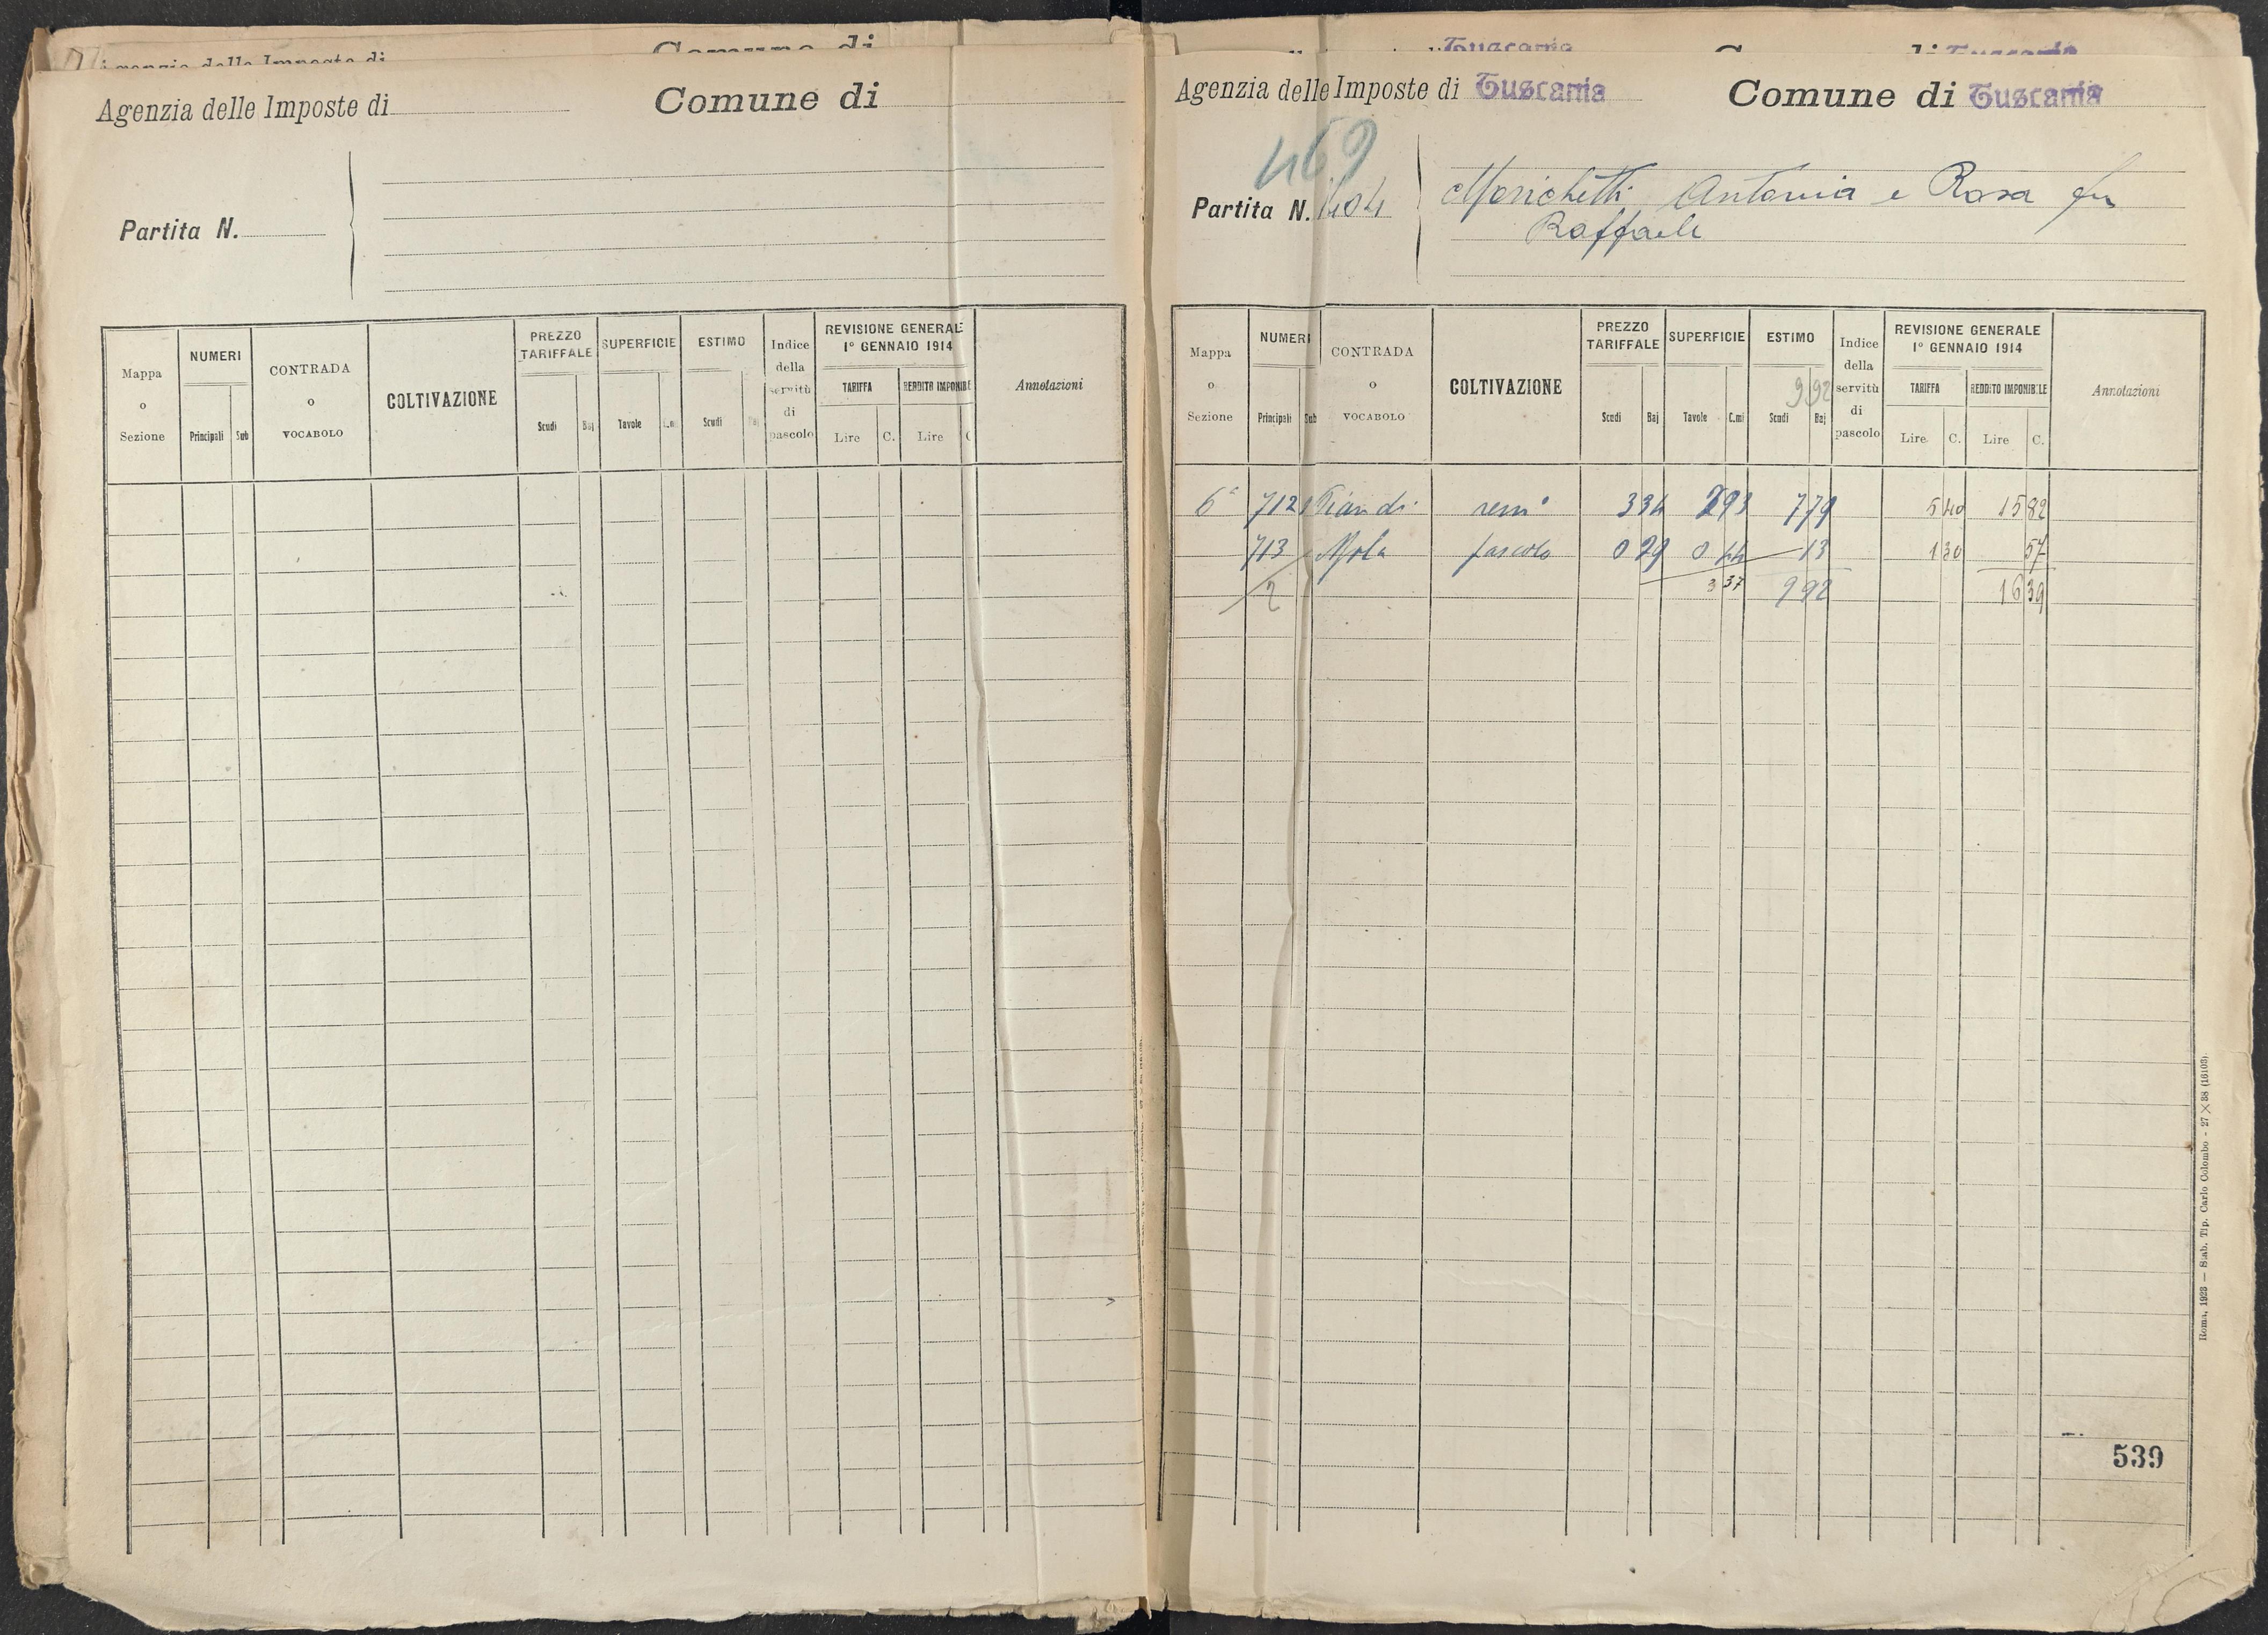 Comune di
Tuscania
Tuscania
Agenzia delle Imposte di
Comune di
Partita N.
Mappa o Sezione
NUMERI
Principali Sub
CONTRADA o VOCABOLO
COLTIVAZIONE
PREZZO TARIFFALE
Scudi Baj
SUPERFICIE
Tavole C.mi
ESTIMO
Scudi Baj
Indice della servitù di pascolo
REVISIONE GENERALE
1° GENNAIO 1914
TARIFFA
Lire C.
REDDITO IMPONIBILE
Lire C
Annotazioni
Agenzia delle Imposte di Tuscania
Comune di Tuscania
469
Partita N. 1404
Morichetti Antonia e Rosa fu
Raffaele
Mappa o Sezione
NUMERI
Principali Sub
CONTRADA o VOCABOLO
COLTIVAZIONE
PREZZO TARIFFALE
Scudi Baj
SUPERFICIE
Tavole C.mi
ESTIMO
9 92
Scudi Baj
Indice della servitù di pascolo
REVISIONE GENERALE
1° GENNAIO 1914
TARIFFA
Lire C.
REDDITO IMPONIBILE
Lire C.
Annotazioni
6ª 712 Pian di semº 334 293 779 5 40 15 82
713 Mola pascolo 0 29 0 44 13 1 30 57
2 3 37 9 92 16 39
539
Roma, 1923 — Stab. Tip. Carlo Colombo - 27 × 38 (16103).